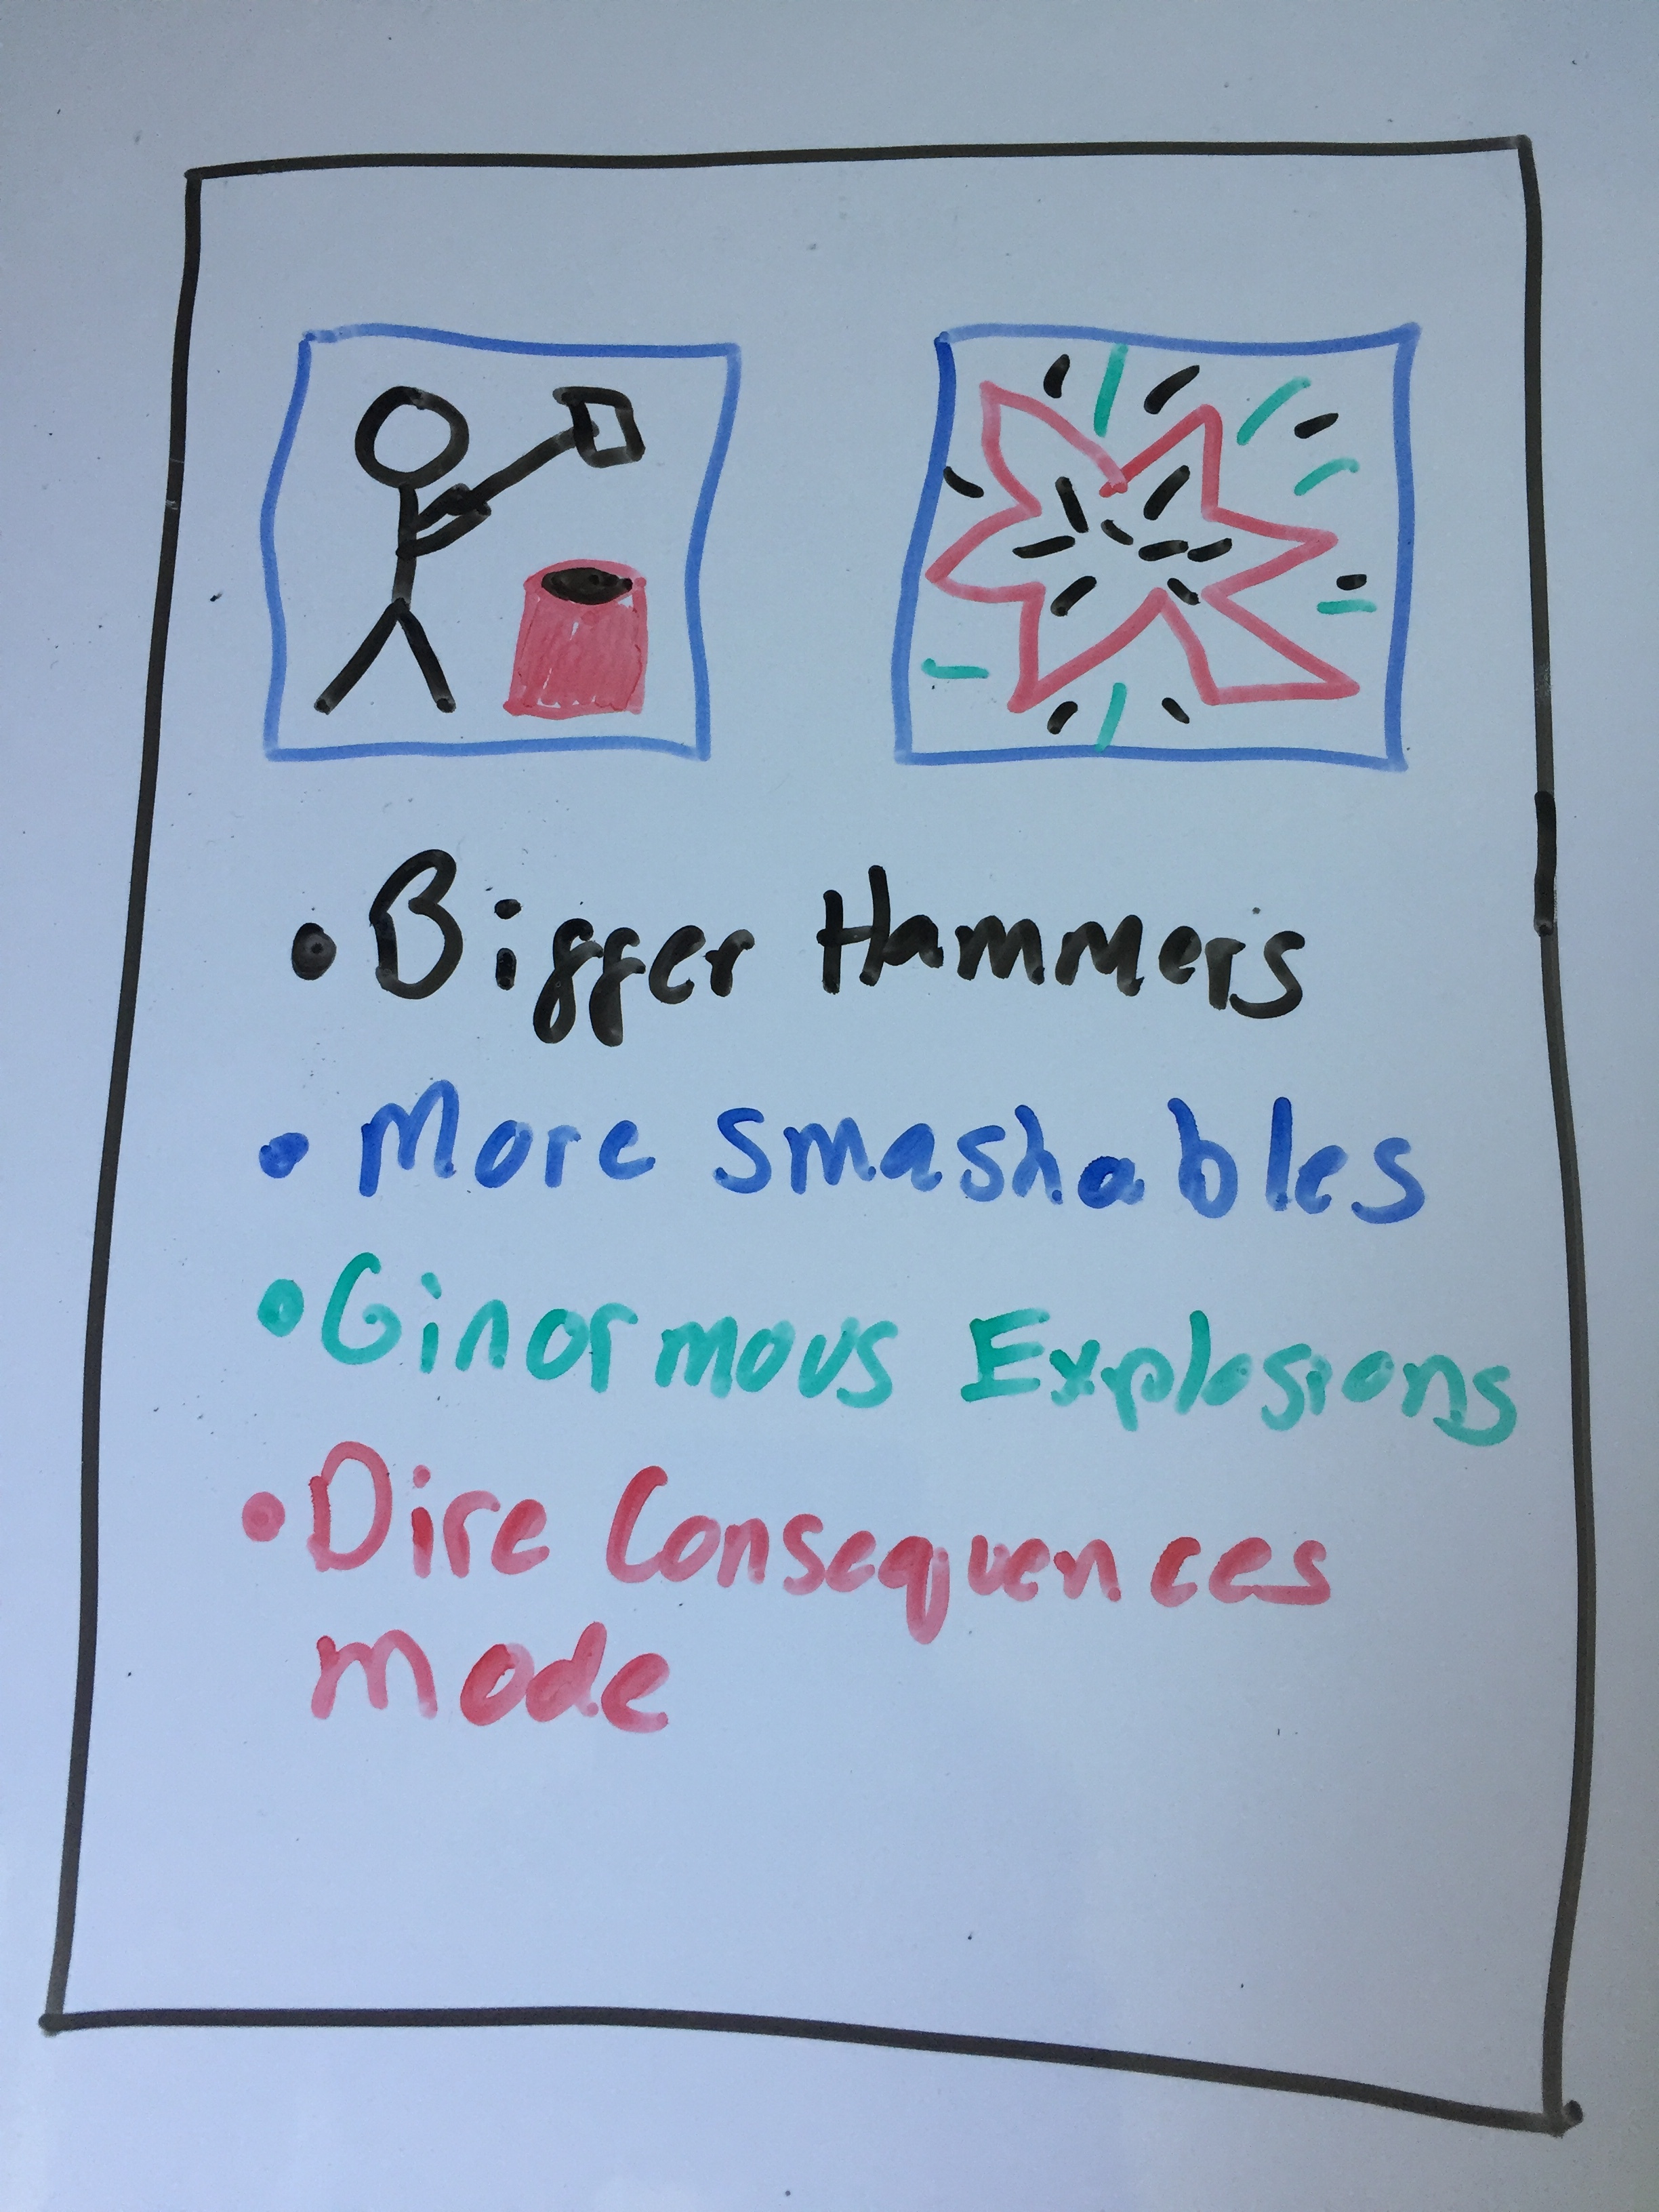 • Bigger Hammers
• More Smashables
• Ginormous Explosions
• Dire Consequences
mode